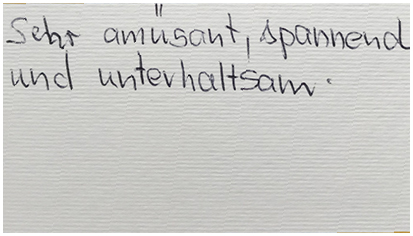 Sehr amüsant, spannend
und unterhaltsam.